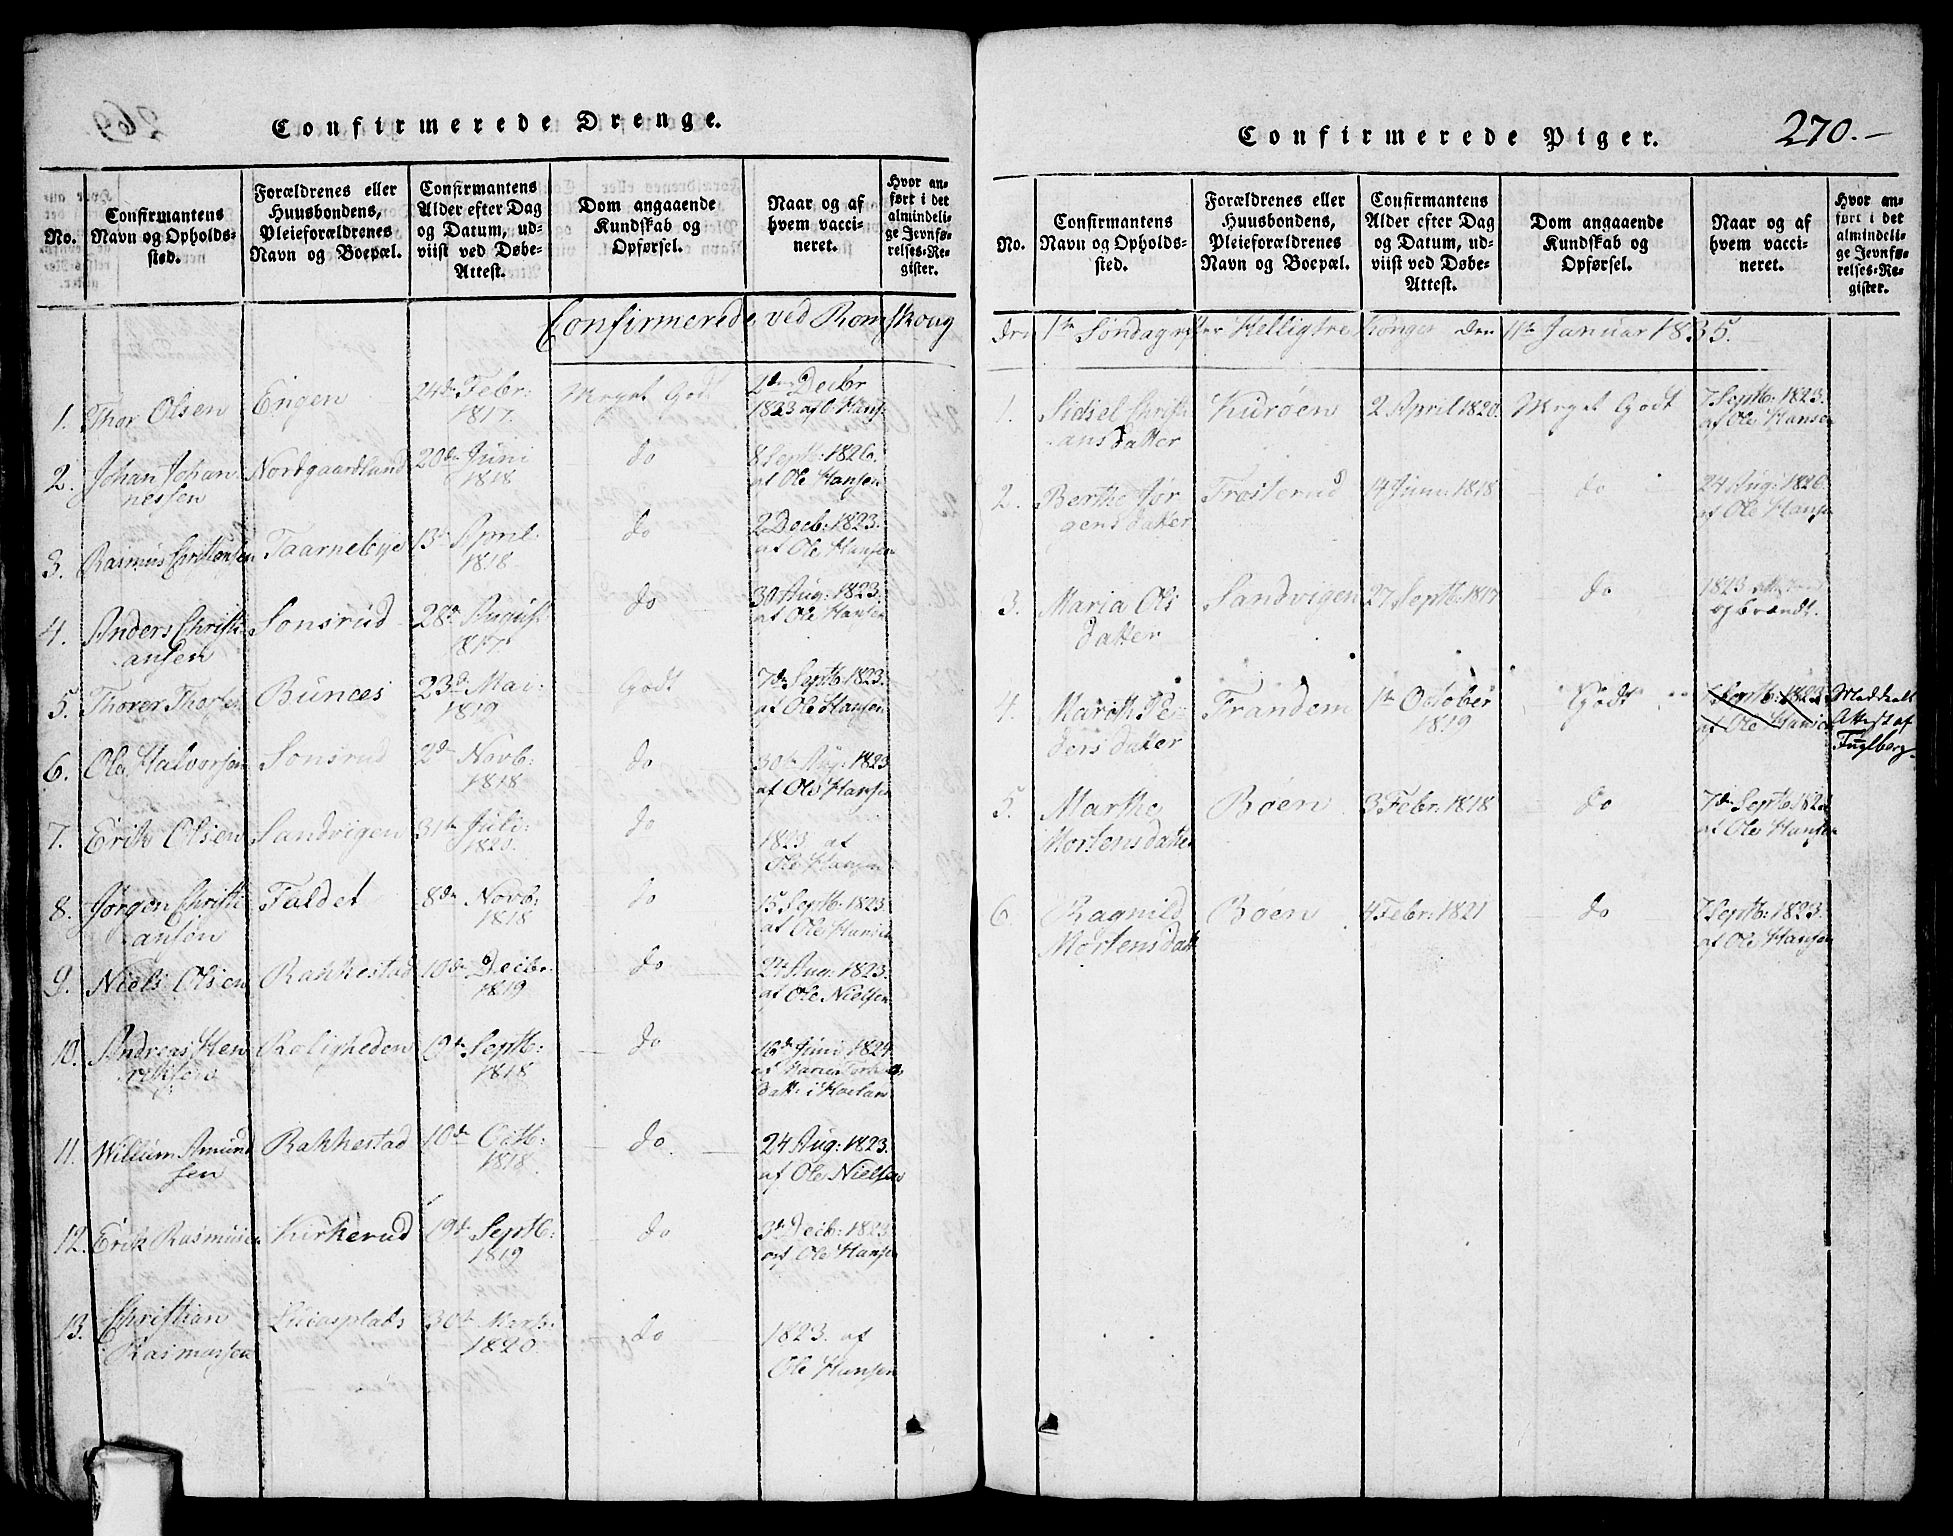 Confirmerede Drenge.
No.
Confirmantens
Navn og Opholds-
sted.
Forældrenes eller
Huusbondens,
Pleieforældrenes
Navn og Boepæl.
Confirmantens
Alder efter Dag
og Datum, ud-
viist ved Døbe-
Attest.
Dom angaaende
Kundskab og
Opførsel.
Naar og af
hvem vacci-
neret.
Hvor an-
ført i det
almindeli-
ge Jevnfø-
relses-Re-
gister.
Confirmerede ved Romskoug
1. Thor Olsen Engen 24de Febr: Meget Godt 2den Decbr
1817. 1823 af O. Hans
2. Johan Johan Nordgaardslund 20de Juni do 8 Septb: 1826.
nessen 1818 af Ole Hansen
3. Rasmus Christiansen Taarnebye 13de April do 2 Decb: 1823.
1818 af Ole Hansen
4. Anders Christi Sonsrud 28de August do 30 Aug: 1823.
ansen 1817. af Ole Hansen
5. Thorer Thorsen Bunces 23de Mai Godt 7de Septb: 1823.
1819 af Ole Hansen
6. Ole Halvorsen Sonsrud 2de Novb: do 30te Aug: 1823
1818 af Ole Hansen
7. Erik Olsen Sandvigen 31te Juli do 1823 af
1820. Ole Hansen
8. Jørgen Christi Faldet 8de Novb: do 15 Septb: 1823.
ansen 1818 af Ole Hansen
9. Niels Olsen Rakkestad 10de Decbr. do 24 Aug: 1823.
1819 af Ole Nielsen
10. Andreas Hen Roligheden 19de Septb: do 16de Juni 1824
riksen 1818 af
datt: i Høeland
11. Willum Amund Rakkestad 10de Octb: do 24 Aug: 1823.
sen 1818. af Ole Nielsen
12. Erik Rasmusen Kirkerud 19de Septb: do 3de Decb: 1823
1819 af Ole Hansen
13. Christian Lucasplads 30te Marts do 1823. af
Rasmussen 1820. Ole Hansen
Confirmerede Piger.
270.-
No.
Confirmantens
Navn og Opholds-
sted.
Forældrenes eller
Huusbondens,
Pleieforældrenes
Navn og Boepæl.
Confirmantens
Alder efter Dag
og Datum, ud-
viist ved Døbe-
Attest.
Dom angaaende
Kundskab og
Opførsel.
Naar og af
hvem vacci-
neret.
Hvor an-
ført i det
almindeli-
ge Jevnfø-
relses-Re-
gister.
den 1te Søndag efter Helligtre Konger den 11te Januar 1835.
1. Sidsel Christi Kurøen 2 April 1820. Meget Godt 7 Septb: 1823.
ansdatter af Ole Hansen
2. Berthe Jør Trosterud 14 Juni 1818 do 24 Aug: 1826.
gensdatter af Ole Hansen
3. Maria Ols Sandvigen 27 Septb: 1817 do 1823
datter opbrændt.
4. Marth Pe Trandem 1te October Godt 7 Septb: 1823 Meddeelt
dersdatter 1819 af Ole Hansen Attest af
Fuglberg
5. Marthe Bøen 3 Febr: 1818 do 7de Septb: 1823
Mortensdatter af Ole Hansen
6 Ragnild Bøen 4 Febr: 1821 do 7 Septb: 1823.
Mortensdatt af Ole Hansen